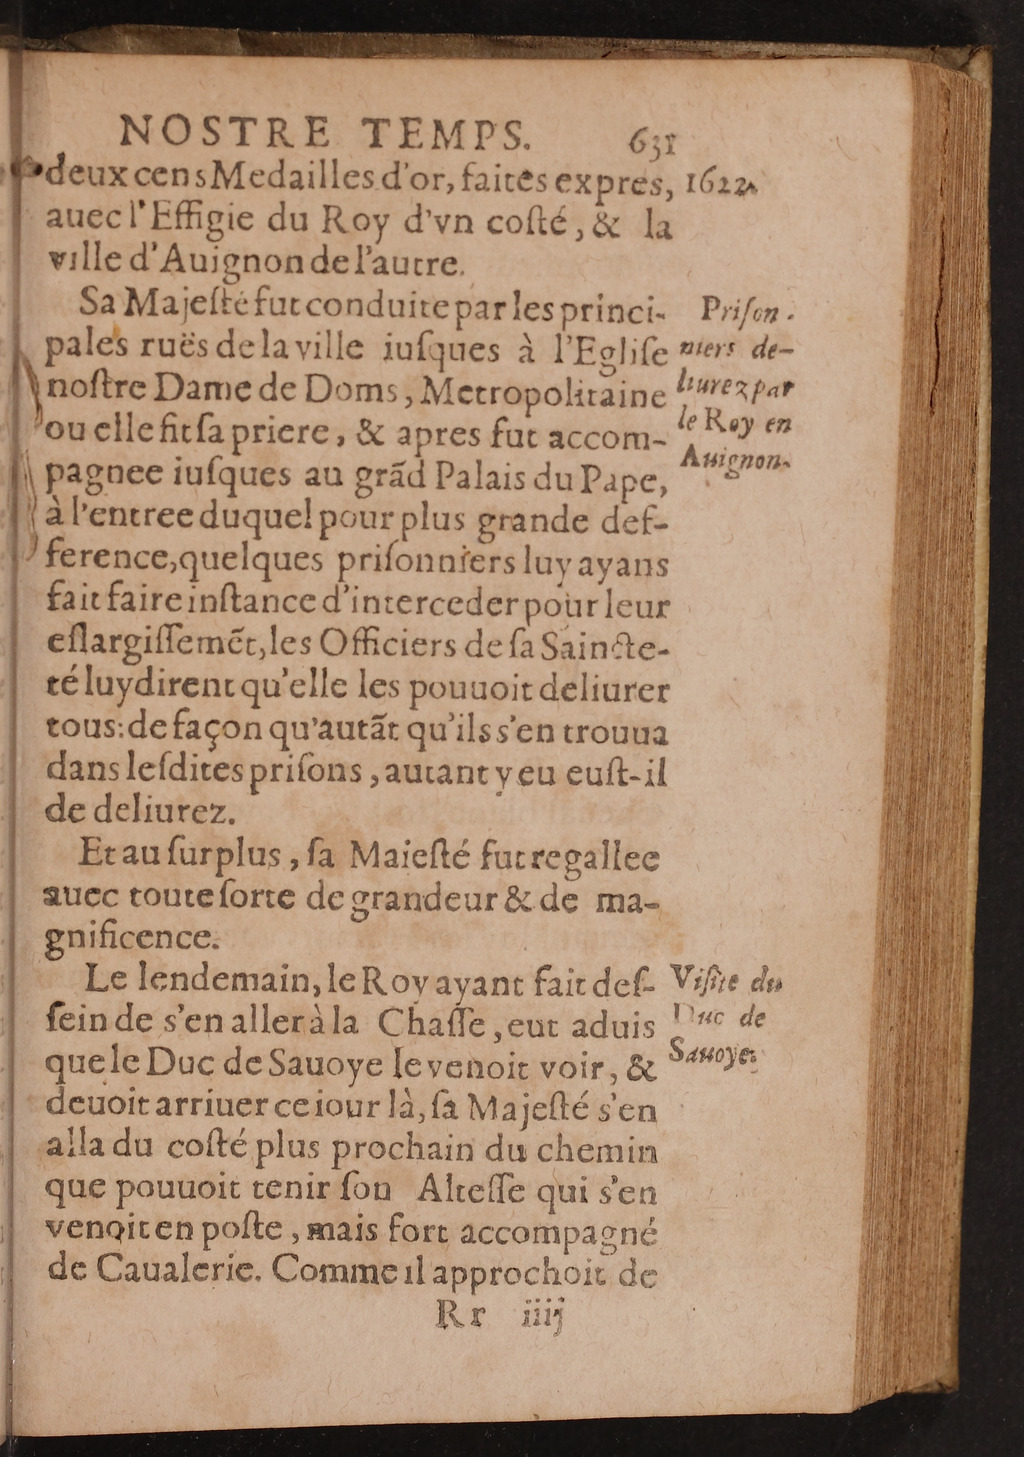 NOSTRE TEMPS. 631
deux cens Medailles d'or, faites expres, 1622.
auec l'Effigie du Roy d'vn coſté, & la
ville d'Auignon de l'autre.
Sa Majeſté fut conduite par les princi-
pales ruës de la ville iuſques à l'Egliſe
noſtre Dame de Doms, Metropolitaine
ou elle fit ſa priere, & apres fut accom-
pagnee iuſques au grãd Palais du Pape,
à l'entree duquel pour plus grande deſ-
ference, quelques priſonniers luy ayans
fait faire inſtance d'interceder pour leur
eſlargiſſemẽt, les Officiers de ſa Saincte-
té luy dirent qu'elle les pouuoit deliurer
tous: de façon qu'autãt qu'ils s'en trouua
dans leſdites priſons, autant y eu euſt-il
de deliurez.
Et au ſurplus, ſa Maieſté fut regallee
auec toute ſorte de grandeur & de ma-
gnificence.
Le lendemain, le Roy ayant fait deſ-
ſein de s'en aller à la Chaſſe, eut aduis
que le Duc de Sauoye le venoit voir, &
deuoit arriuer ce iour là, ſa Majeſté s'en
alla du coſté plus prochain du chemin
que pouuoit tenir ſon Alteſſe qui s'en
venoit en poſte, mais fort accompagné
de Caualerie. Comme il approchoit de
Rr iiij
Priſon-
niers de-
liurez par
le Roy en
Auignon.
Viſite du
Duc de
Sauoye.